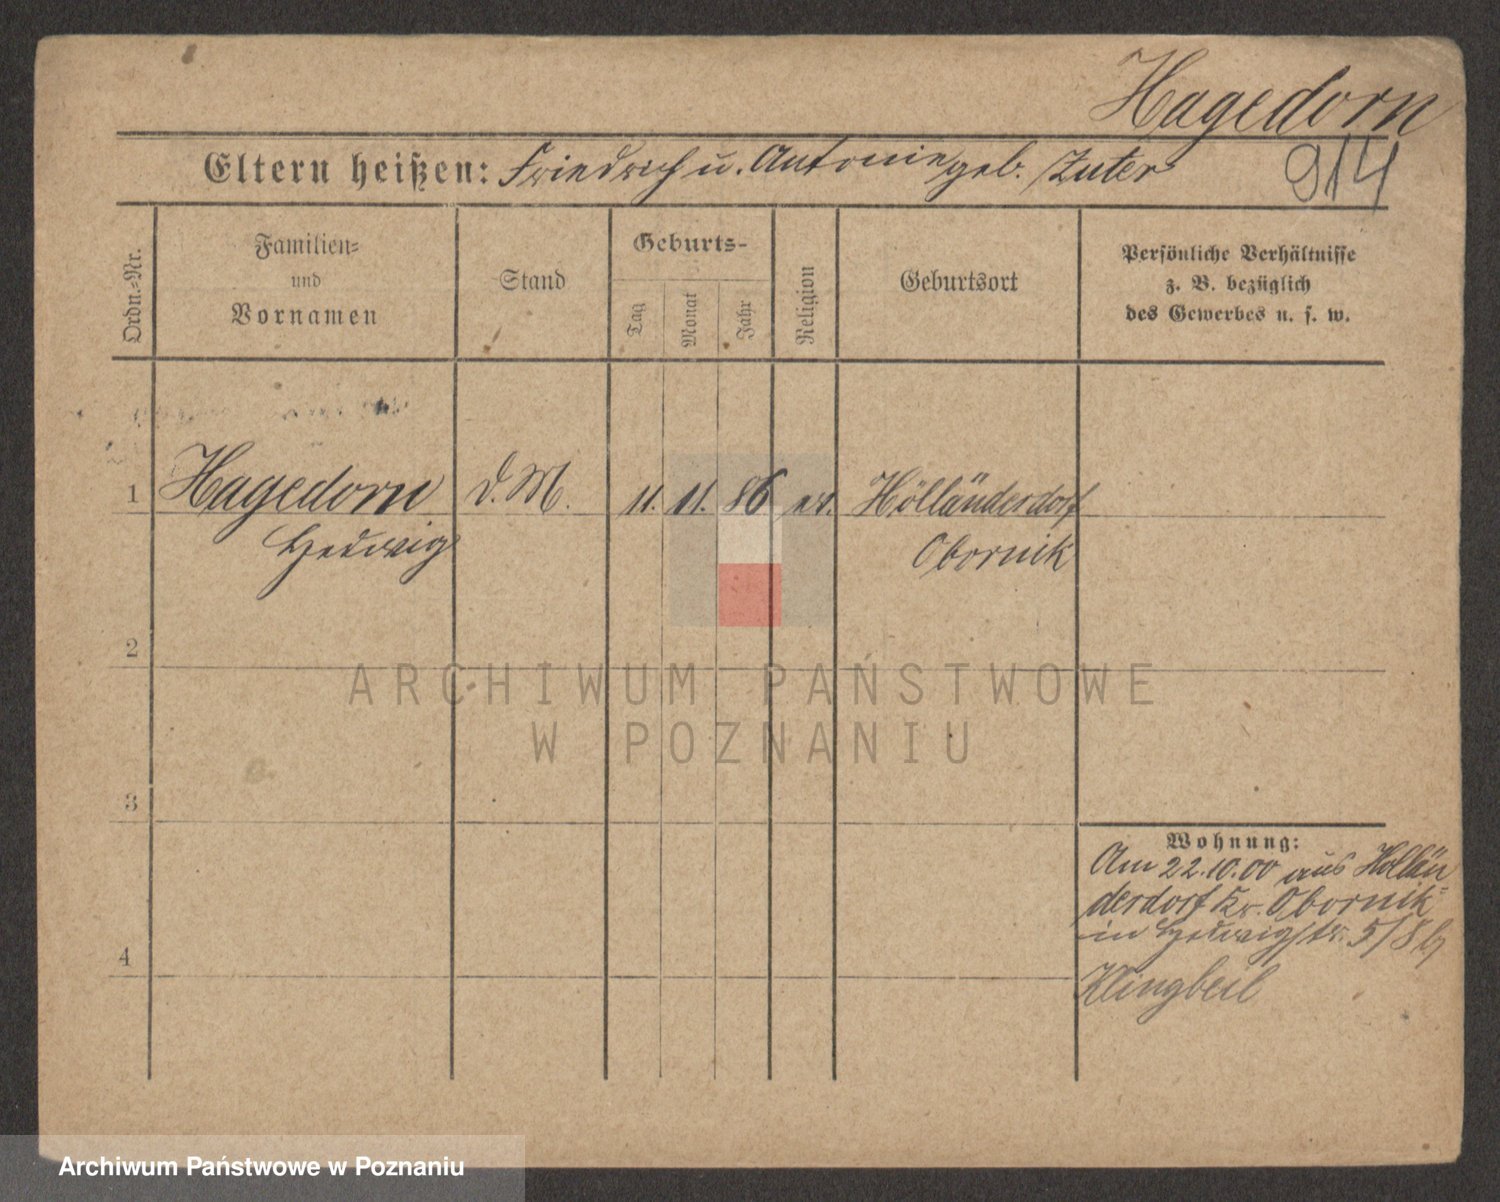 Hagedorn
Eltern heißen: Friedrich u. Antonie geb. Zuter
914
Ordn.-Nr.
Familien-
und
Vornamen
Stand
Geburts-
Tag
Monat
Jahr
Religion
Geburtsort
Persönliche Verhältnisse
z. B. bezüglich
des Gewerbes u. s. w.
1 Hagedorn d. M. 11. 11. 86 ev. Hölländerdorf
Hedwig Obornik
2
ARCHIWUM PAŃSTWOWE
W POZNANIU
3
Wohnung:
Am 22.10.00 aus Hollän
derdorf Kr. Obornik
in Hedwigstr. 5/8 b
4
Klingbeil
Archiwum Państwowe w Poznaniu